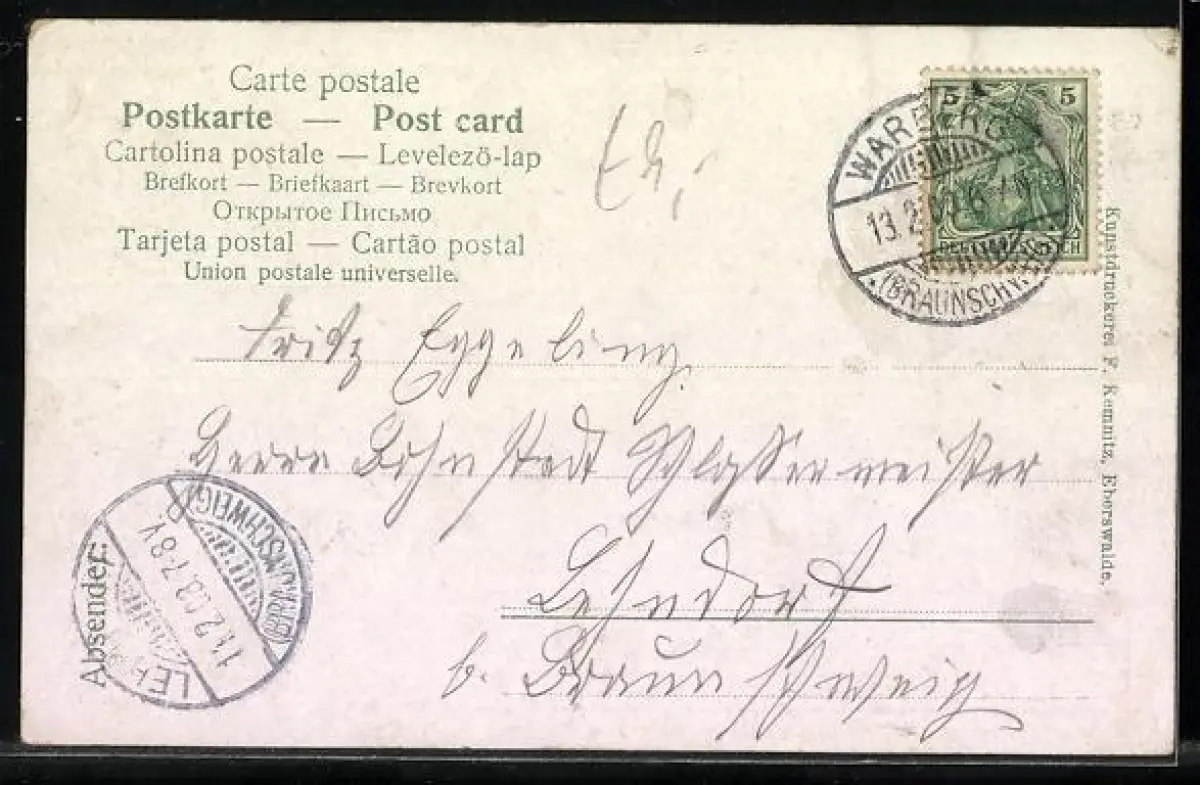 Carte postale
Postkarte — Post card
Cartolina postale — Levelező-lap
Brefkort — Briefkaart — Brevkort
Открытое Письмо
Tarjeta postal — Cartão postal
Union postale universelle.
5 5
WARBERG
13.2.
(BRAUNSCHW.
Fritz Eggeling.
Herrn Bohnstedt Schlossermeister
Lehndorf
b. Braunschweig
Absender:
(BRAUNSCHWEIG)
14.2.03.7-8V
Kunstdruckerei F. Kemnitz, Eberswalde.